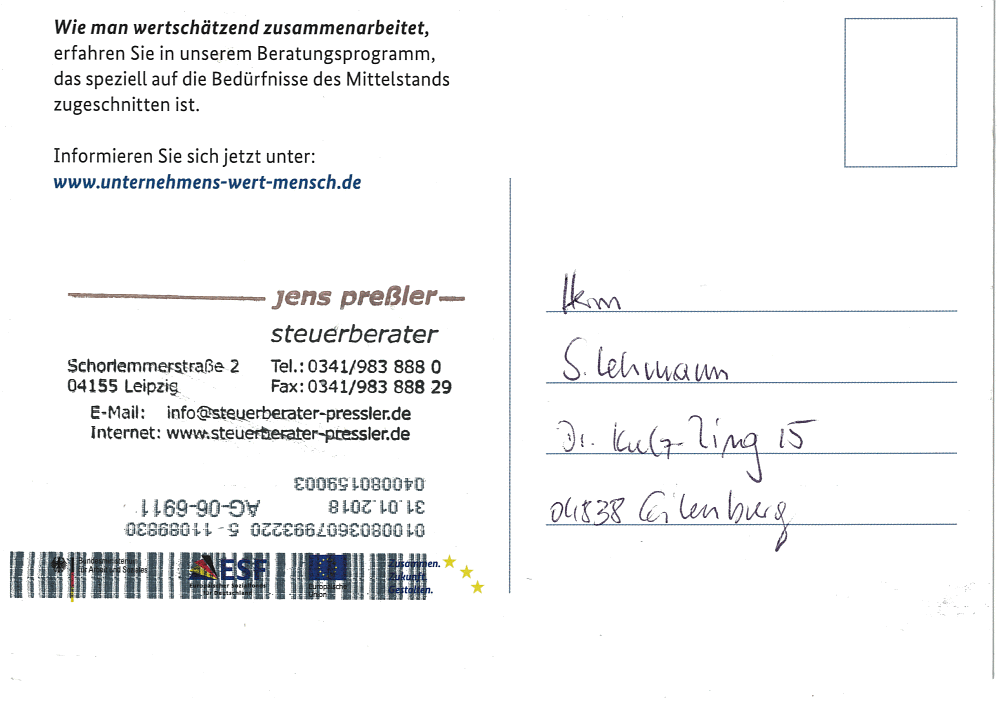 Wie man wertschätzend zusammenarbeitet,
erfahren Sie in unserem Beratungsprogramm,
das speziell auf die Bedürfnisse des Mittelstands
zugeschnitten ist.
Informieren Sie sich jetzt unter:
www.unternehmens-wert-mensch.de
jens preßler
steuerberater
Schorlemmerstraße 2 Tel.: 0341/983 888 0
04155 Leipzig Fax: 0341/983 888 29
E-Mail: info@steuerberater-pressler.de
Internet: www.steuerberater-pressler.de
Herrn
S. Lehmann
Dr. Külz-Ring 15
04838 Eilenburg
040080159003
31.01.2018 AG-06-6911
5 - 11089830
Bundesministerium
für Arbeit und Soziales
ESF
Europäischer Sozialfonds
für Deutschland
Europäische
Union
Zusammen.
Zukunft.
Gestalten.